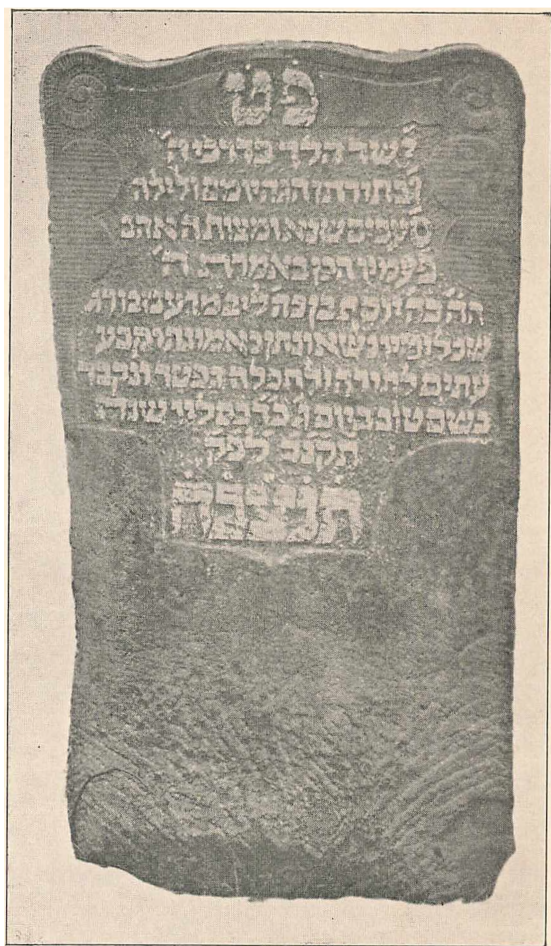 פ ט
ישר הלך בדרכי ה׳
ובתורתו הגה יומם ולילה
סעיפים שנא ומצות ה אהב
פעמיו הכין באמרות ה׳
הה כה יוסף בן כה ליב
שכל ימיו נשא ונתן באמונה וקבע
עתים לתורה ולתפלה נפטר ונקבר
בשם טוב ביום ג׳ כד כסליו שנת
תקנב לפק
תנצבה